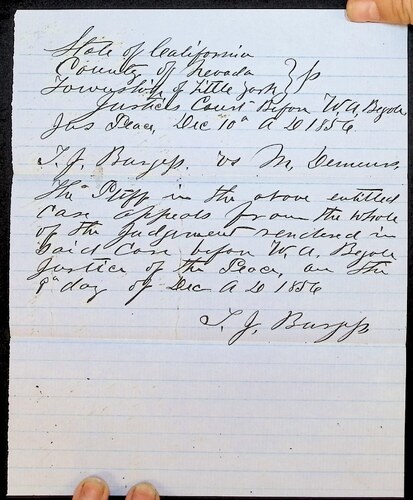 State of California
County of Nevada } ss
Township of Little York
Justices Court Before W. A. Begole
Jus Peace, Dec 10th A D 1856
T. J. Burgess. vs M.
The Pltff in the above entitled
Case appeals from the whole
of the Judgment rendered in
said Case before W. A. Begole
Justice of the Peace, on the
9th day of Dec A D 1856
T. J. Burgess